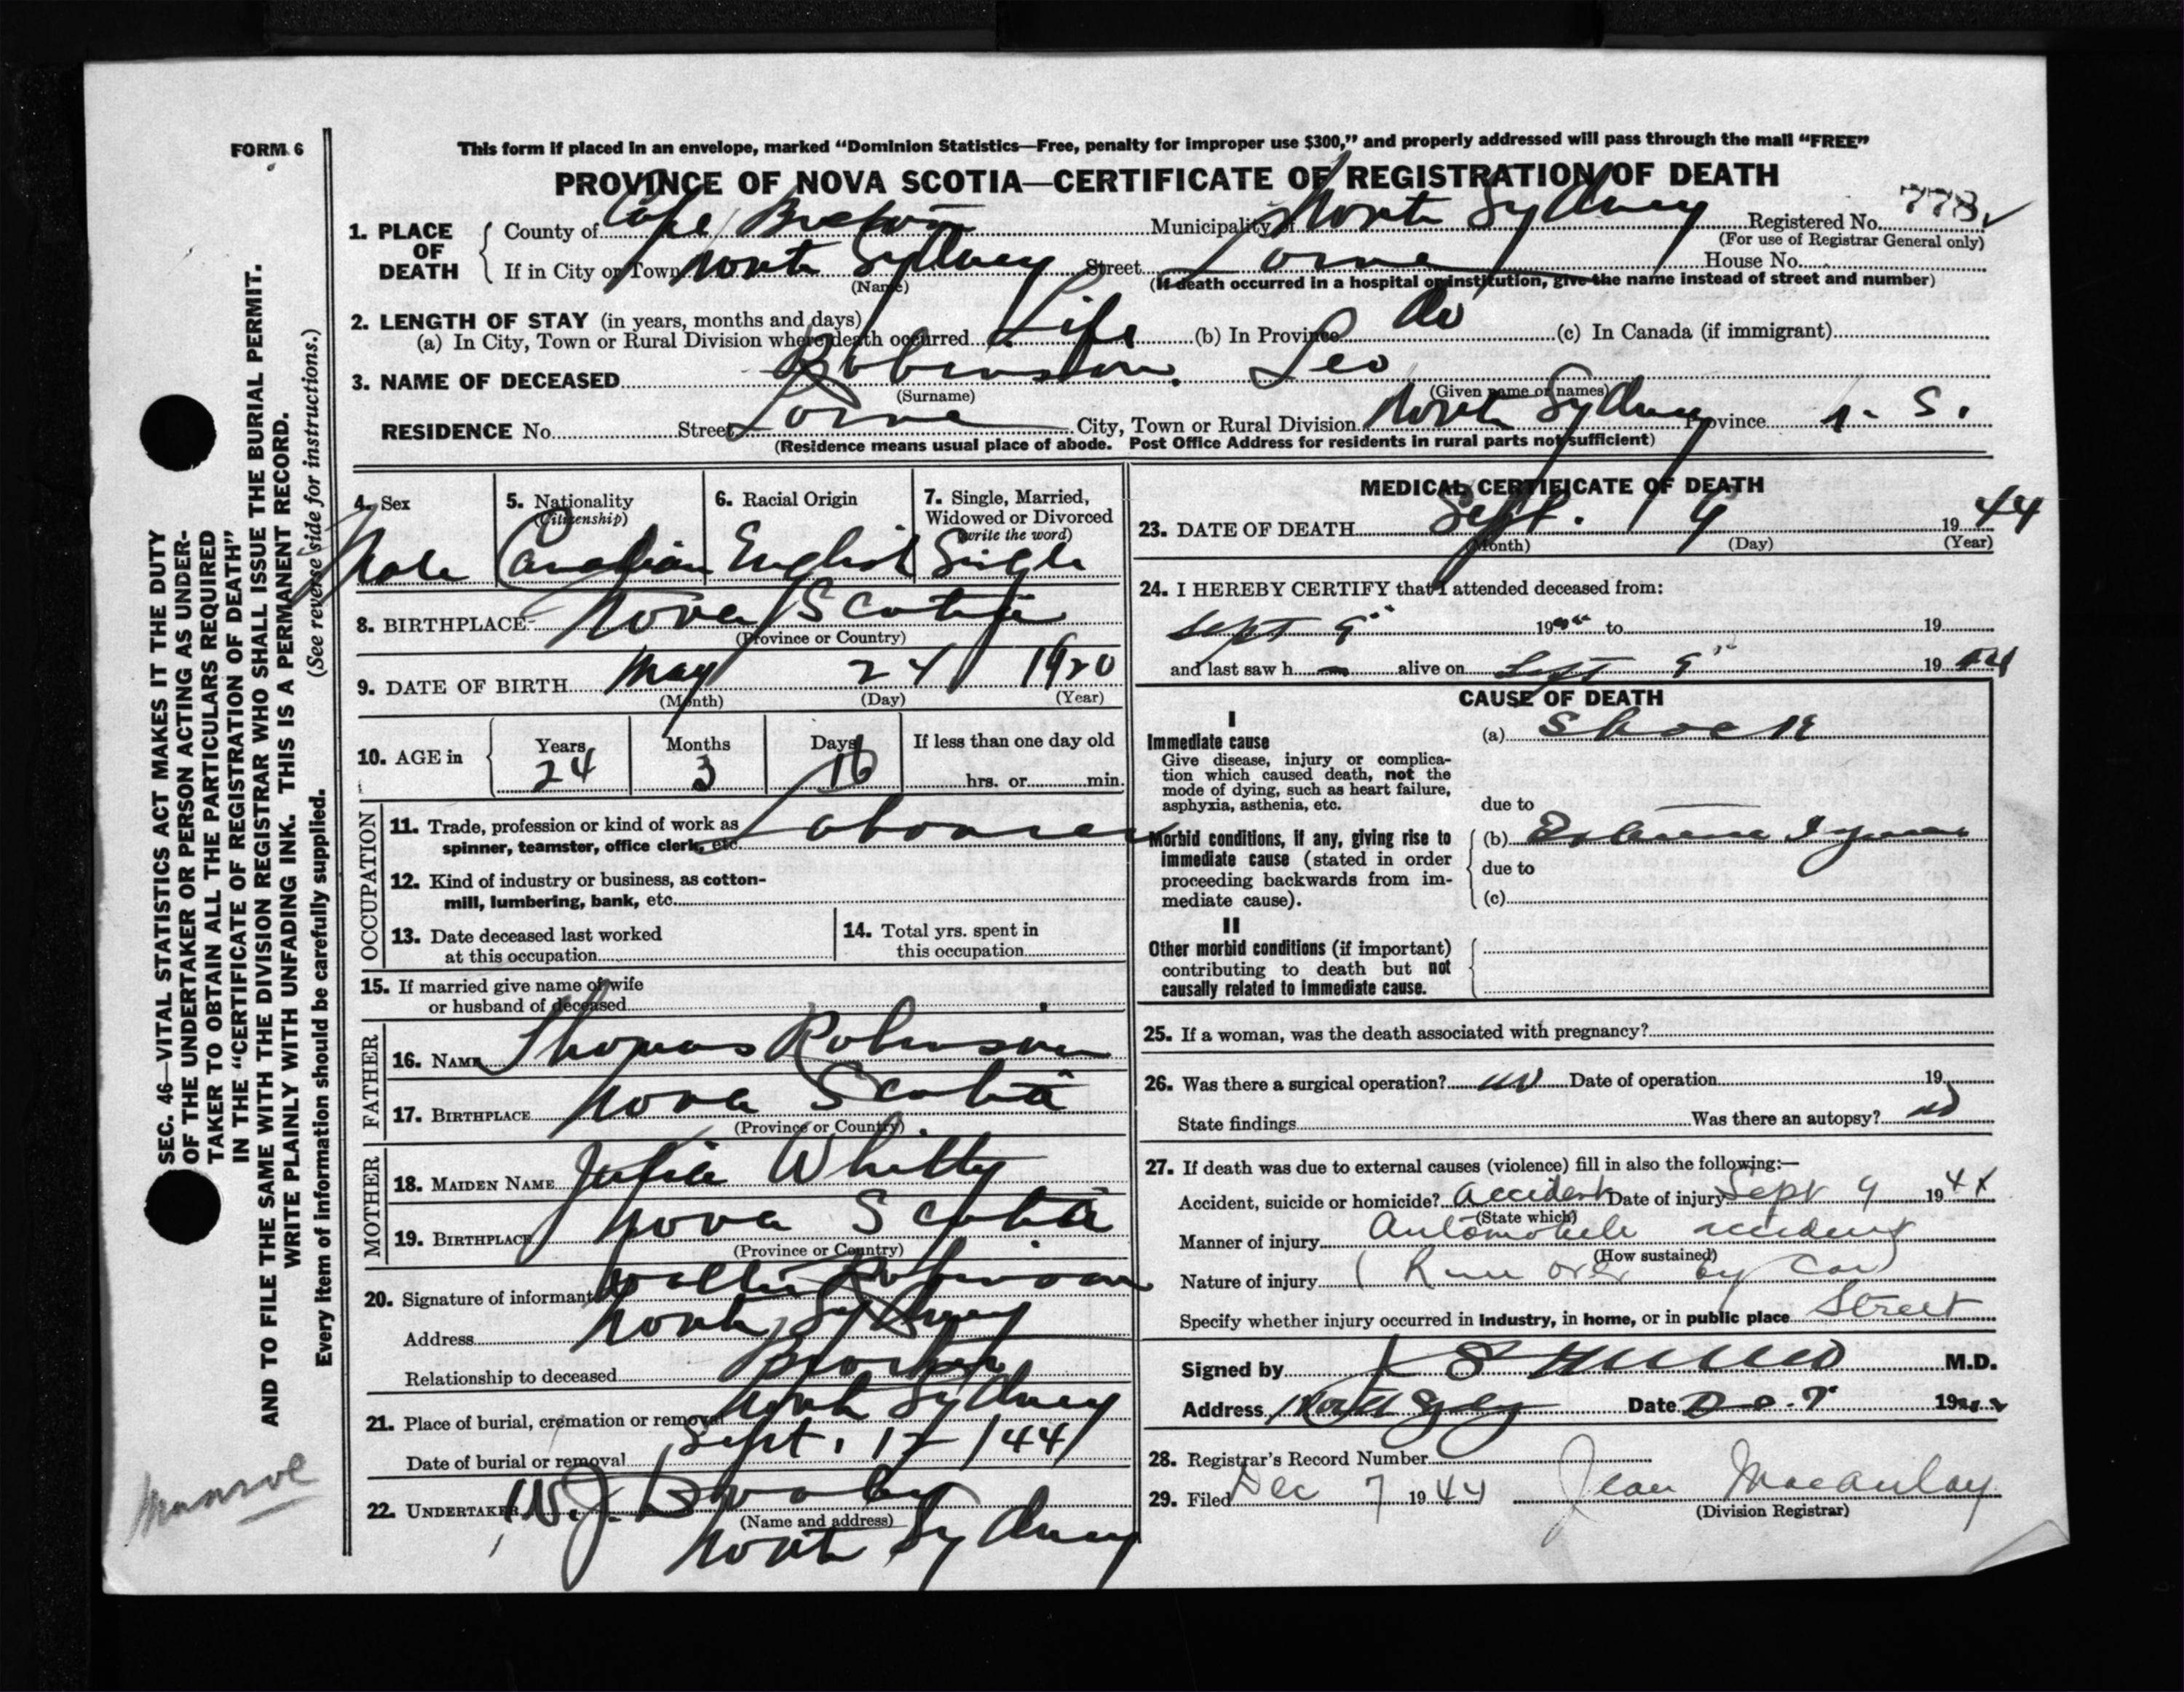 FORM 6
This form if placed in an envelope, marked "Dominion Statistics—Free, penalty for improper use $300," and properly addressed will pass through the mail "FREE"
PROVINCE OF NOVA SCOTIA—CERTIFICATE OF REGISTRATION OF DEATH
1. PLACE OF DEATH County of Cape Breton Municipality of North Sydney Registered No. 778
(For use of Registrar General only)
If in City or Town North Sydney Street Lorne House No.
(Name) (If death occurred in a hospital or institution, give the name instead of street and number)
2. LENGTH OF STAY (in years, months and days)
(a) In City, Town or Rural Division where death occurred Life (b) In Province do (c) In Canada (if immigrant)
3. NAME OF DECEASED Robinson. Leo
(Surname) (Given name or names)
RESIDENCE No. Street Lorne City, Town or Rural Division North Sydney Province N. S.
(Residence means usual place of abode. Post Office Address for residents in rural parts not sufficient)
4. Sex Male
5. Nationality (Citizenship) Canadian
6. Racial Origin English
7. Single, Married, Widowed or Divorced (write the word) Single
8. BIRTHPLACE Nova Scotia
(Province or Country)
9. DATE OF BIRTH May 24 1920
(Month) (Day) (Year)
10. AGE in Years 24 Months 3 Days 16 If less than one day old hrs. or min.
OCCUPATION
11. Trade, profession or kind of work as Labourer
spinner, teamster, office clerk, etc.
12. Kind of industry or business, as cotton-
mill, lumbering, bank, etc.
13. Date deceased last worked
at this occupation
14. Total yrs. spent in
this occupation
15. If married give name of wife
or husband of deceased
FATHER
16. NAME Thomas Robinson
17. BIRTHPLACE Nova Scotia
(Province or Country)
MOTHER
18. MAIDEN NAME Julia Whitty
19. BIRTHPLACE Nova Scotia
(Province or Country)
20. Signature of informant Robinson
Address North Sydney
Relationship to deceased Brother
21. Place of burial, cremation or removal North Sydney
Date of burial or removal Sept. 12/44
22. UNDERTAKER W.J.
(Name and address)
North Sydney
MEDICAL CERTIFICATE OF DEATH
23. DATE OF DEATH Sept. 9 1944
(Month) (Day) (Year)
24. I HEREBY CERTIFY that I attended deceased from:
Sept 9 19 to 19
and last saw h alive on Sept 9 19 44
CAUSE OF DEATH
I
Immediate cause
Give disease, injury or complica-
tion which caused death, not the
mode of dying, such as heart failure,
asphyxia, asthenia, etc.
(a) Shock
due to
Morbid conditions, if any, giving rise to
immediate cause (stated in order
proceeding backwards from im-
mediate cause).
(b)
due to
(c)
II
Other morbid conditions (if important)
contributing to death but not
causally related to immediate cause.
25. If a woman, was the death associated with pregnancy?
26. Was there a surgical operation? no Date of operation 19
State findings Was there an autopsy? no
27. If death was due to external causes (violence) fill in also the following:—
Accident, suicide or homicide? Accident Date of injury Sept 9 1944
(State which)
Manner of injury Automobile accident
(How sustained)
Nature of injury (Run over by car)
Specify whether injury occurred in industry, in home, or in public place Street
Signed by M.D.
Address Date 19
28. Registrar's Record Number
29. Filed Dec 7 1944 Jean Macaulay
(Division Registrar)
SEC. 46—VITAL STATISTICS ACT MAKES IT THE DUTY
OF THE UNDERTAKER OR PERSON ACTING AS UNDER-
TAKER TO OBTAIN ALL THE PARTICULARS REQUIRED
IN THE "CERTIFICATE OF REGISTRATION OF DEATH"
AND TO FILE THE SAME WITH THE DIVISION REGISTRAR WHO SHALL ISSUE THE BURIAL PERMIT.
WRITE PLAINLY WITH UNFADING INK. THIS IS A PERMANENT RECORD.
Every item of information should be carefully supplied. (See reverse side for instructions.)
Munroe